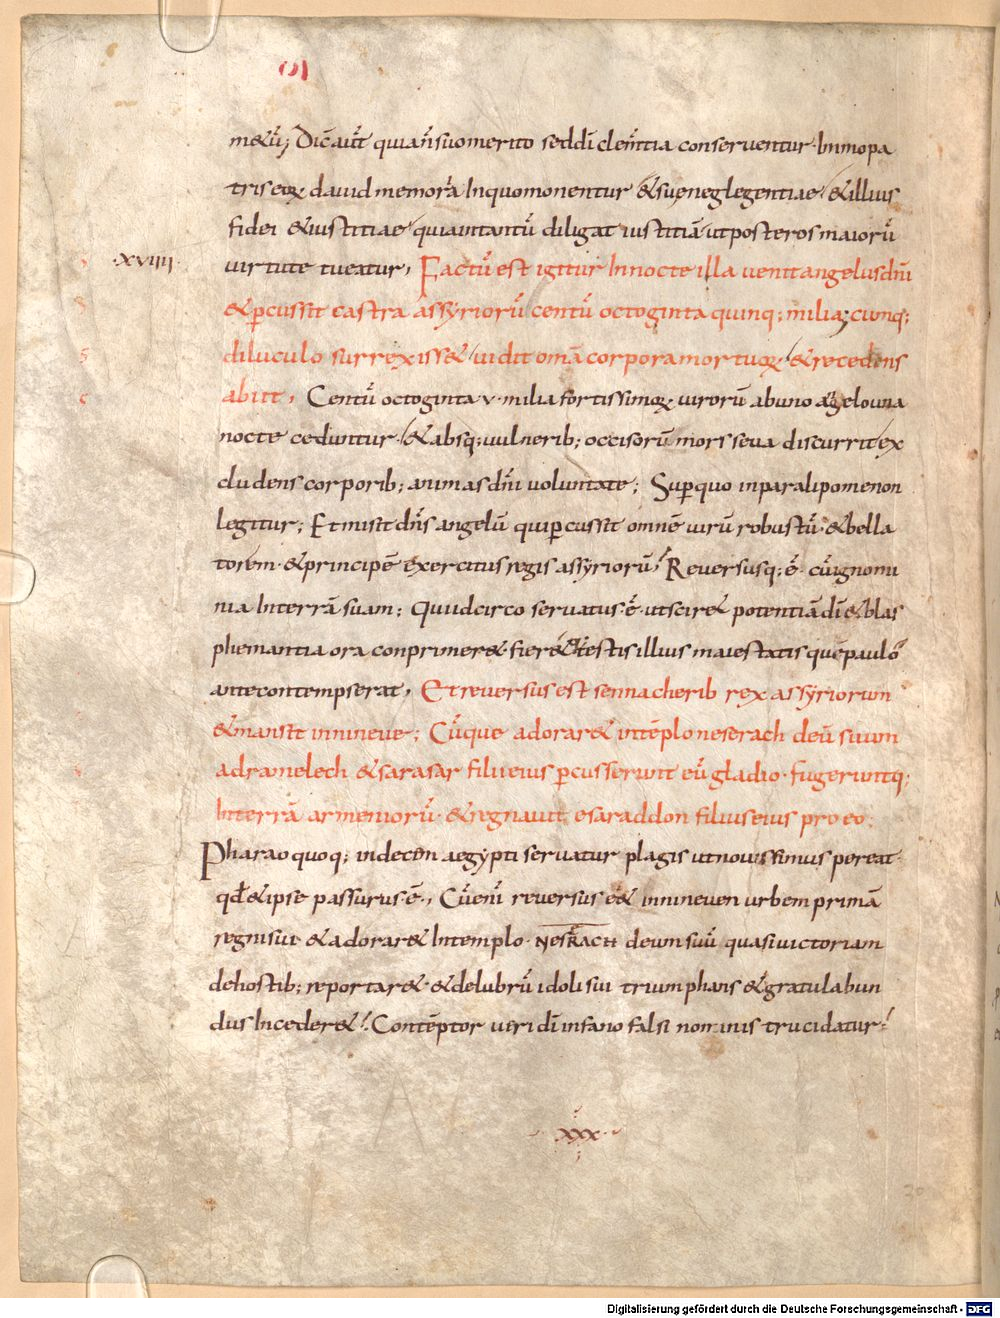 m&ū; Dic̄ aut̄ quian̄ suo merito sed dī clem̄tia conserventur· Immo pa
tris eoꝝ david memoria In quo monentur & suę neglegentiae & illius
fidei & iustitiae quia intantū diligat iustitiā ut posteros maiorū
·XVIIII· virtute tueatur, Factū est igitur In nocte illa venit angelus dn̄i
& ꝑcussit castra assyriorū centū octoginta quinq; milia; cumq;
diluculo surrexiss& vidit omā corpora mortuoꝝ & recedens
abiit, Centū octoginta v· milia fortissimoꝝ virorū ab uno angelo una
nocte ceduntur & absq; vulnerib; occisorū mors seva discurrit ex
cludens corporib; animas dn̄i voluntate; Suꝑ quo in paralipomenon
legitur; Et misit dn̄s angelū qui ꝑcussit omnē virū robustū· & bella
torem· & principē exercitus regis assyriorū, Reversusq; ē· cū ignomi
nia In terrā suam; Quidcirco servatus·ē· ut scir& potentiā dī & blas
phemantia ora conprimer& fier& testis illius maiestatis quē paulo
ante contempserat, Et reversus est sennacherib rex assyriorum
& mansit in nineve; Cūque adorar& in tēplo neserach deū suum
adramelech & sarasar filii eius ꝑcusserunt eū gladio· fugeruntq;
In terrā armeniorū· & regnavit esaraddon filius eius pro eo;
Pharao quoq; in decem aegypti servatur plagis ut novissimus pereat·
qđ & ipse passurus·ē·, Cū enī reversus e&· in nineven urbem primā
regni sui & adorar& In templo· NESRACH deum suū quasi victoriam
de hostib; reportar&· & delubrū idoli sui triumphans & gratulabun
dus Inceder&: Contēptor veri dī in fano falsi nominis trucidatur;
xxx